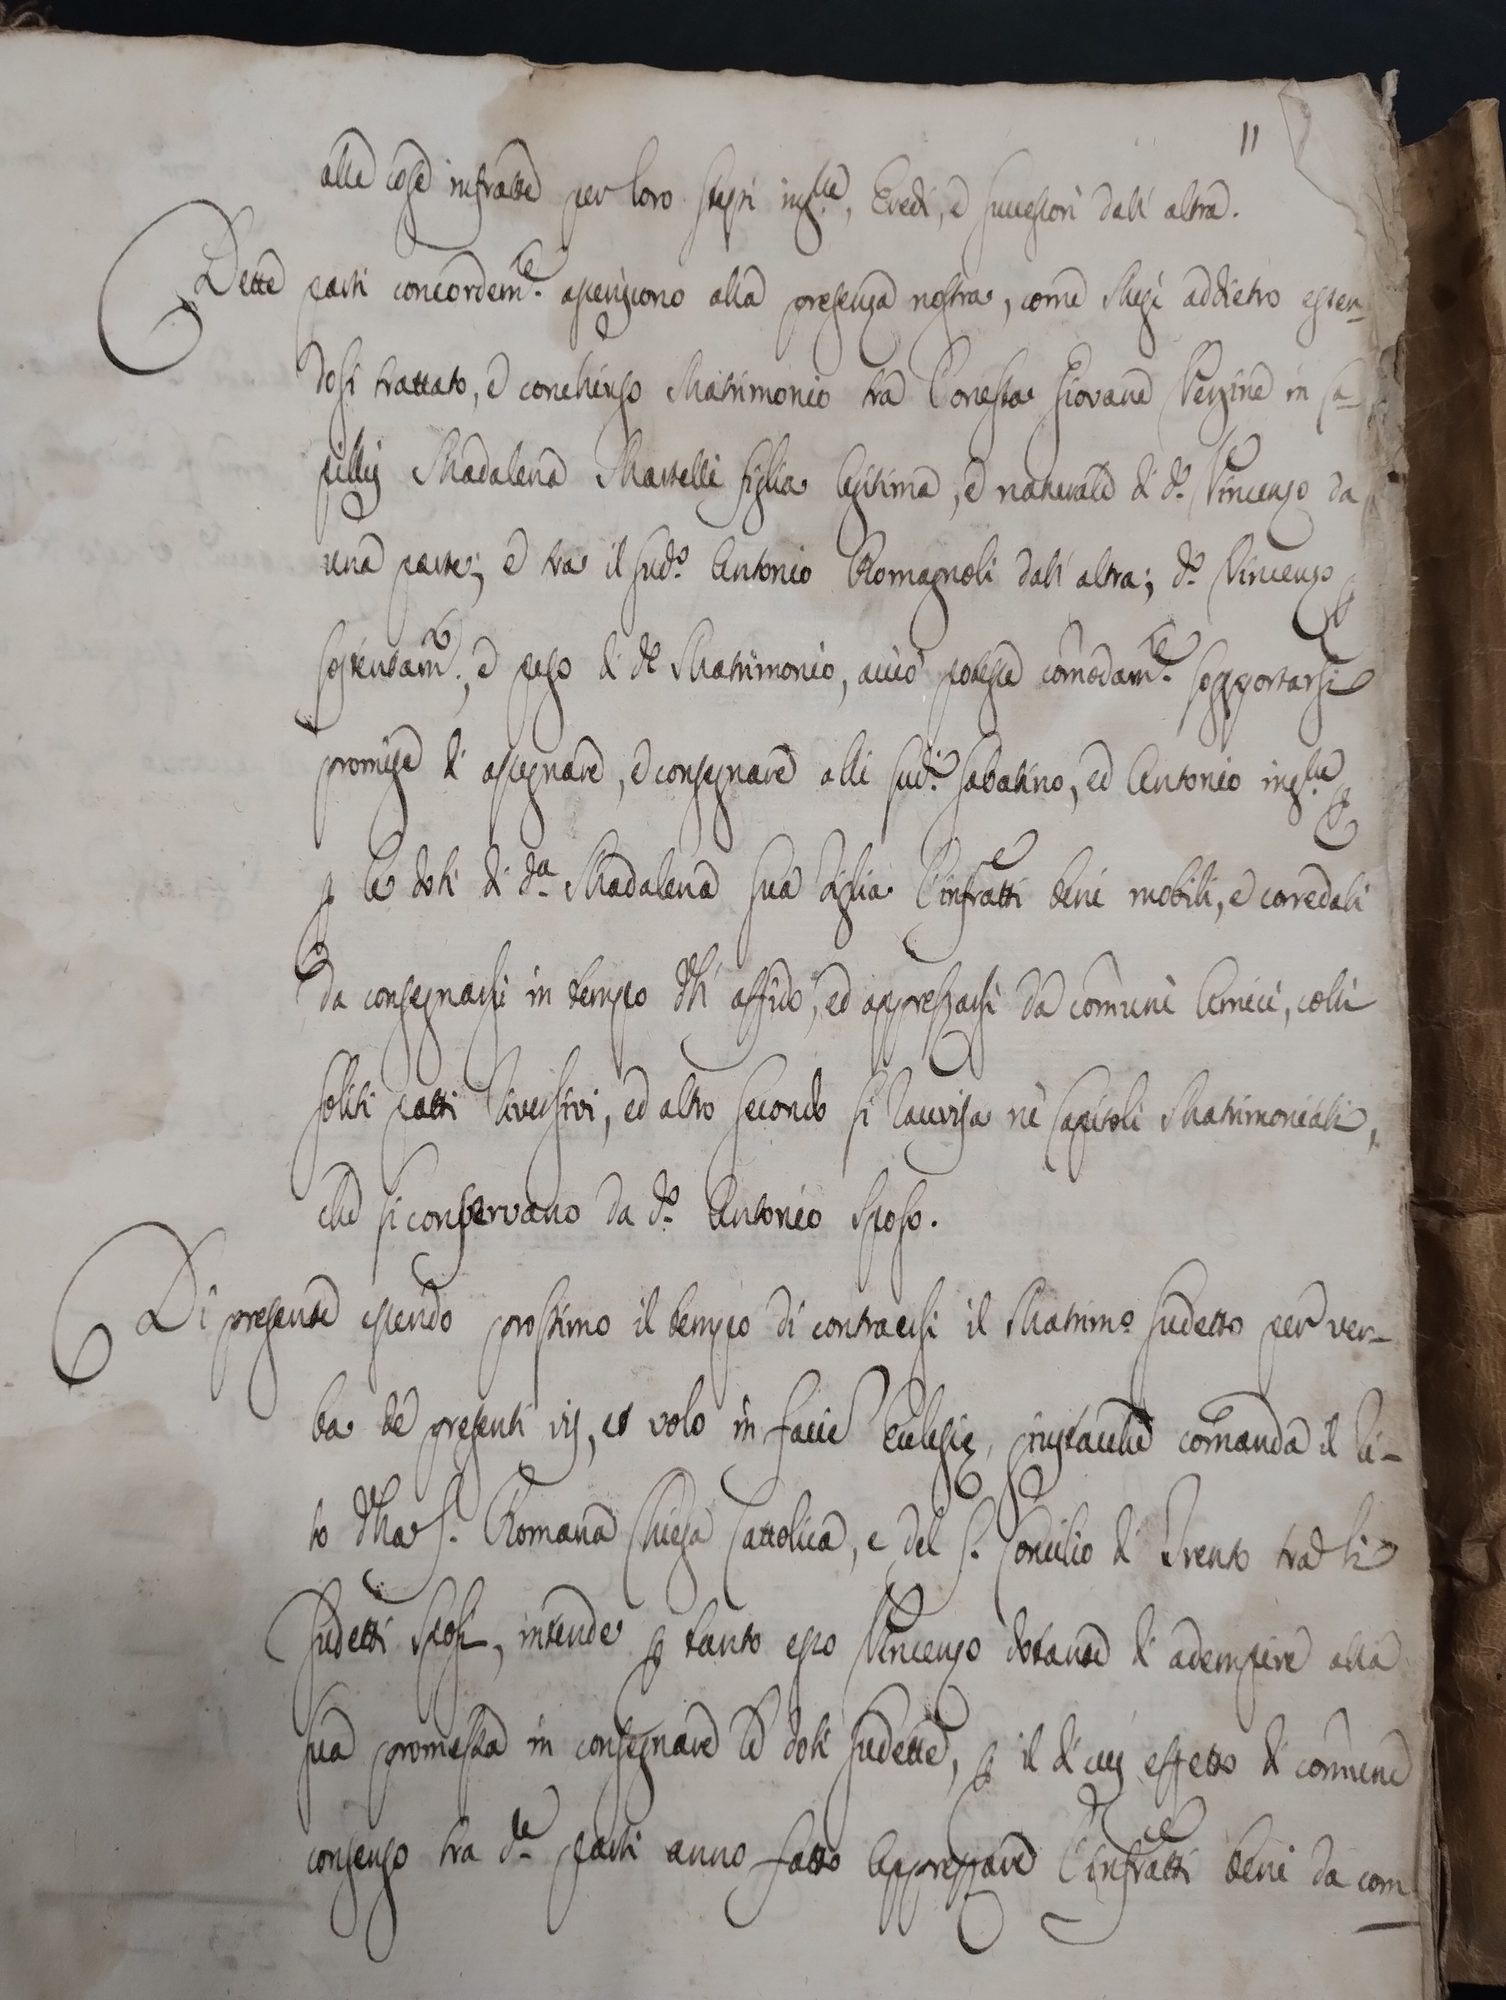 11
alle cose infratte per loro stessi ins.lte, Eredi, e successori dall'altra.
Dette parti concordem.te asseriscono alla presenza nostra, come Mesi addietro essen-
dosi trattato, e conchiuso Matrimonio tra l'onesta Giovane Vergine in ca-
pillis Madalena Martelli figlia legitima, e naturale di d.o Vincenzo da
una parte; e tra il sud.o Antonio Romagnoli dall'altra; d.o Vincenzo p
sostentam.to, e peso di d.o Matrimonio, acciò potesse com̃odam.te sopportarsi
promise di assegnare, e consegnare alli sud.i Sabatino, ed Antonio ins.lte
p le doti di d.a Madalena sua figlia l'infratti beni mobili, e corredali
da consegnarsi in tempo dll' affido, ed apprezzarsi da com̃uni Amici, colli
soliti patti riversivi, ed altro secondo si ravvisa nè Capitoli Matrimoniali,
che si conservano da d.o Antonio Sposo.
Di presente essendo prossimo il tempo di contraersi il Matrim.o sudetto per ver-
ba de presenti vis, et volo in facie Ecclesię, giustacche com̃anda il Ri-
to dlla S. Romana Chiesa Cattolica, e del S. Concilio di Trento tra li
sudetti Sposi, intende p tanto esso Vincenzo dotante di adempire alla
sua promessa in consegnare le doti sudette, p il di cui effetto di com̃une
consenso tra d.te parti anno fatto apprezzare l'infratti beni da com-